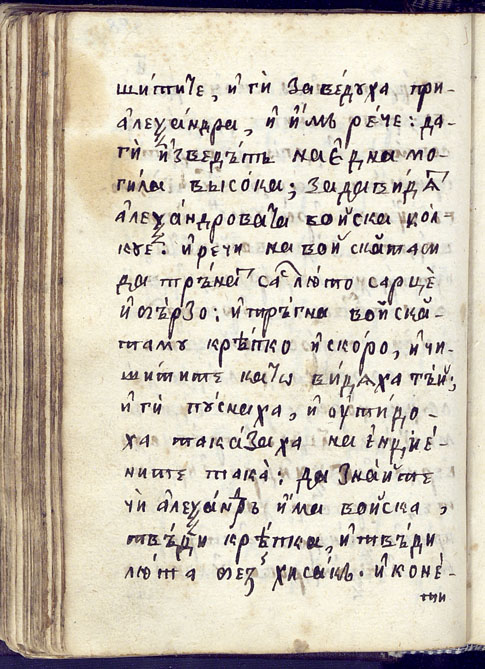 шѝтиче, и҆ гѝ заведꙋха при-
а҆леѯандра, и҆ и҆мь рече: да-
гѝ и҆зведѣтъ на е҆дна мо-
гила висо́ка; за да видѧт
а҆леѯандровата во́йска кол-
кꙋе: и҆ речи на во́йскатаси
да трѣ́нат са с лю́то сарце
и҆ бѣ́рзо: и҆ трѣ́гна во́йска-
тамꙋ крѣ́пко и҆ ско́ро, и҆ чи-
ши́тите като̀ ви́дѧха тѣй;
и҆ гѝ пꙋснаха, и҆ ѡ҆тидо-
ха та каза́ха на е҆нџїе́-
ните така̀: да зна́йте
чѝ а҆леѯандрь и҆ма во́йска,
твѣ́рди крѣ́пка, и҆ твѣ́рди
лю́та без хиса́пь. и҆ коне́-
ти